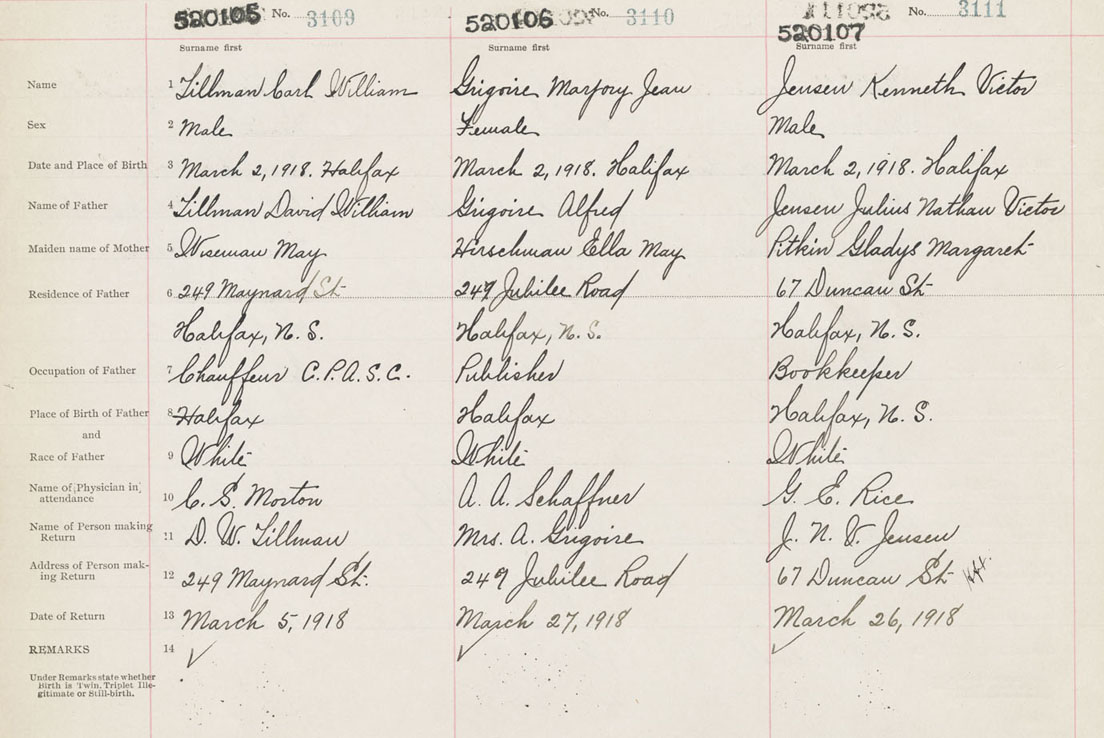 520105 No. 3109 520106 No. 3110 No. 3111
520107
Surname first Surname first Surname first
Name 1 Tillman Carl William Grigoire Marjory Jean Jensen Kenneth Victor
Sex 2 Male Female Male
Date and Place of Birth 3 March 2, 1918. Halifax March 2, 1918. Halifax March 2, 1918. Halifax
Name of Father 4 Tillman David William Grigoire Alfred Jensen Julius Nathan Victor
Maiden name of Mother 5 Wiseman May Hirschman Ella May Pitkin Gladys Margaret
Residence of Father 6 249 Maynard St 249 Jubilee Road 67 Duncan St
Halifax, N. S. Halifax, N. S. Halifax, N. S.
Occupation of Father 7 Chauffeur C.P.A.S.C. Publisher Bookkeeper
Place of Birth of Father 8 Halifax Halifax Halifax, N. S.
and
Race of Father 9 White White White
Name of Physician in
attendance 10 C. S. Morton A. A. Schaffner G. E. Rice
Name of Person making
Return 11 D. W. Tillman Mrs. A. Grigoire J. N. V. Jensen
Address of Person mak-
ing Return 12 249 Maynard St. 249 Jubilee Road 67 Duncan St Hfx.
Date of Return 13 March 5, 1918 March 27, 1918 March 26, 1918
REMARKS 14
Under Remarks state whether
Birth is Twin, Triplet Ille-
gitimate or Still-birth.